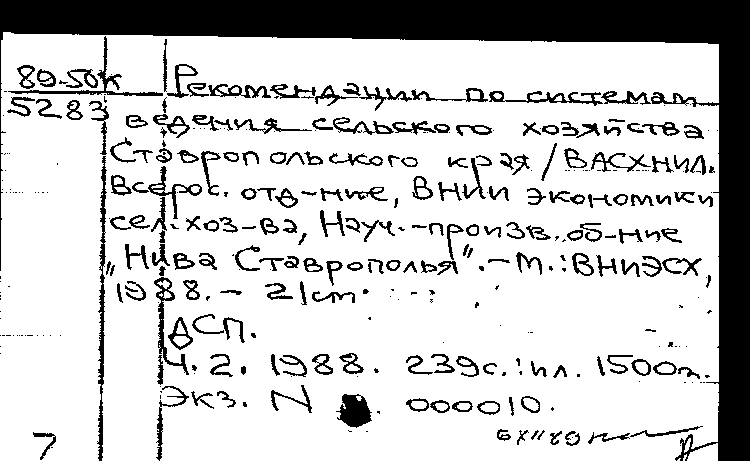 89-50к Рекомендации по системам
5283 ведения сельского хозяйства
Ставропольского края / ВАСХНИЛ.
Всерос. отд-ние, ВНИИ экономики
сел. хоз-ва, Науч.-произв. об-ние
„Нива Ставрополья“. - М.: ВНИЭСХ,
1988. - 21 cm.
ДСП.
Ч. 2. 1988. 239с.: ил. 1500э.
Экз. N 000010.
7